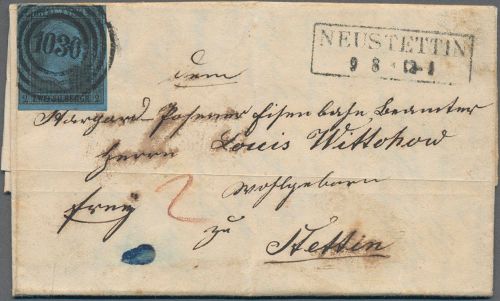 1030
2 ZWEI SILBERGR. 2
NEUSTETTIN
9 8 12-1
dem
Stargard-Posener Eisenbahn Beamter
Herrn Louis Wittchow
Wohlgeborn
frey 2
zu
Stettin